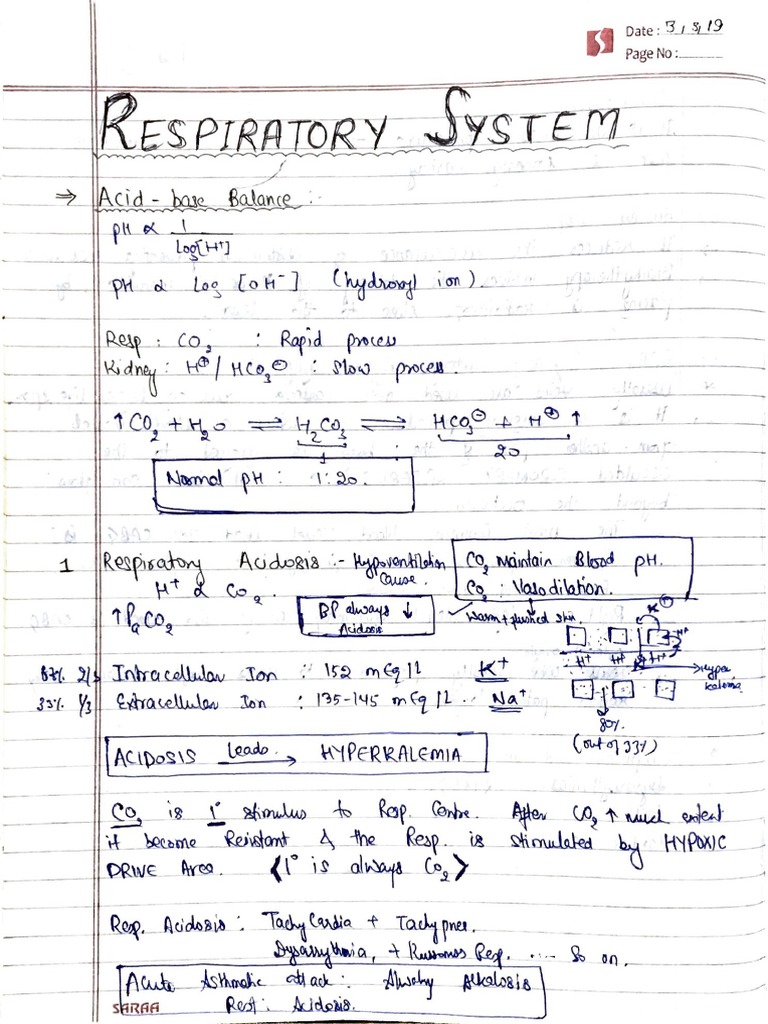 Date: 3, 8, 19
Page No:
RESPIRATORY SYSTEM
⇒ Acid-base Balance :-
pH ∝ 1/log[H⁺]
pH ∝ log [OH⁻] (hydroxyl ion).
Resp : CO₂ : Rapid process
Kidney : H⊕/ HCO₃⊖ : Slow process.
↑CO₂ + H₂O ⇌ H₂CO₃ ⇌ HCO₃⊖ + H⊕ ↑
1 20
Normal pH : 1:20.
1 Respiratory Acidosis :- Hypoventilation Cause.
CO₂ Maintain Blood pH.
CO₂ : Vasodilation.
H⁺ ∝ CO₂.
↑PaCO₂
BP always ↓
Acidosis
✓ Warm + flushed skin.
K⊕
H⁺
H⁺ H⁺ H⁺
→ Hyper
kalemia
67% 2/3 Intracellular Ion : 152 mEq/L K⁺
33% 1/3 Extracellular Ion : 135-145 mEq/L.. Na⁺
80%
(out of 33%)
ACIDOSIS Leads → HYPERKALEMIA
CO₂ is 1° stimulus to Resp. Centre. After CO₂ ↑ much extent
it become Resistant & the Resp. is stimulated by HYPOXIC
DRIVE Area. <1° is always CO₂>
Resp. Acidosis : TachyCardia + Tachypnea.
Dysarrythmia, + Kussmos Resp. .... So on.
Acute Asthmatic attack : Alwahy Alkalosis
Rest : Acidosis.
SARAA